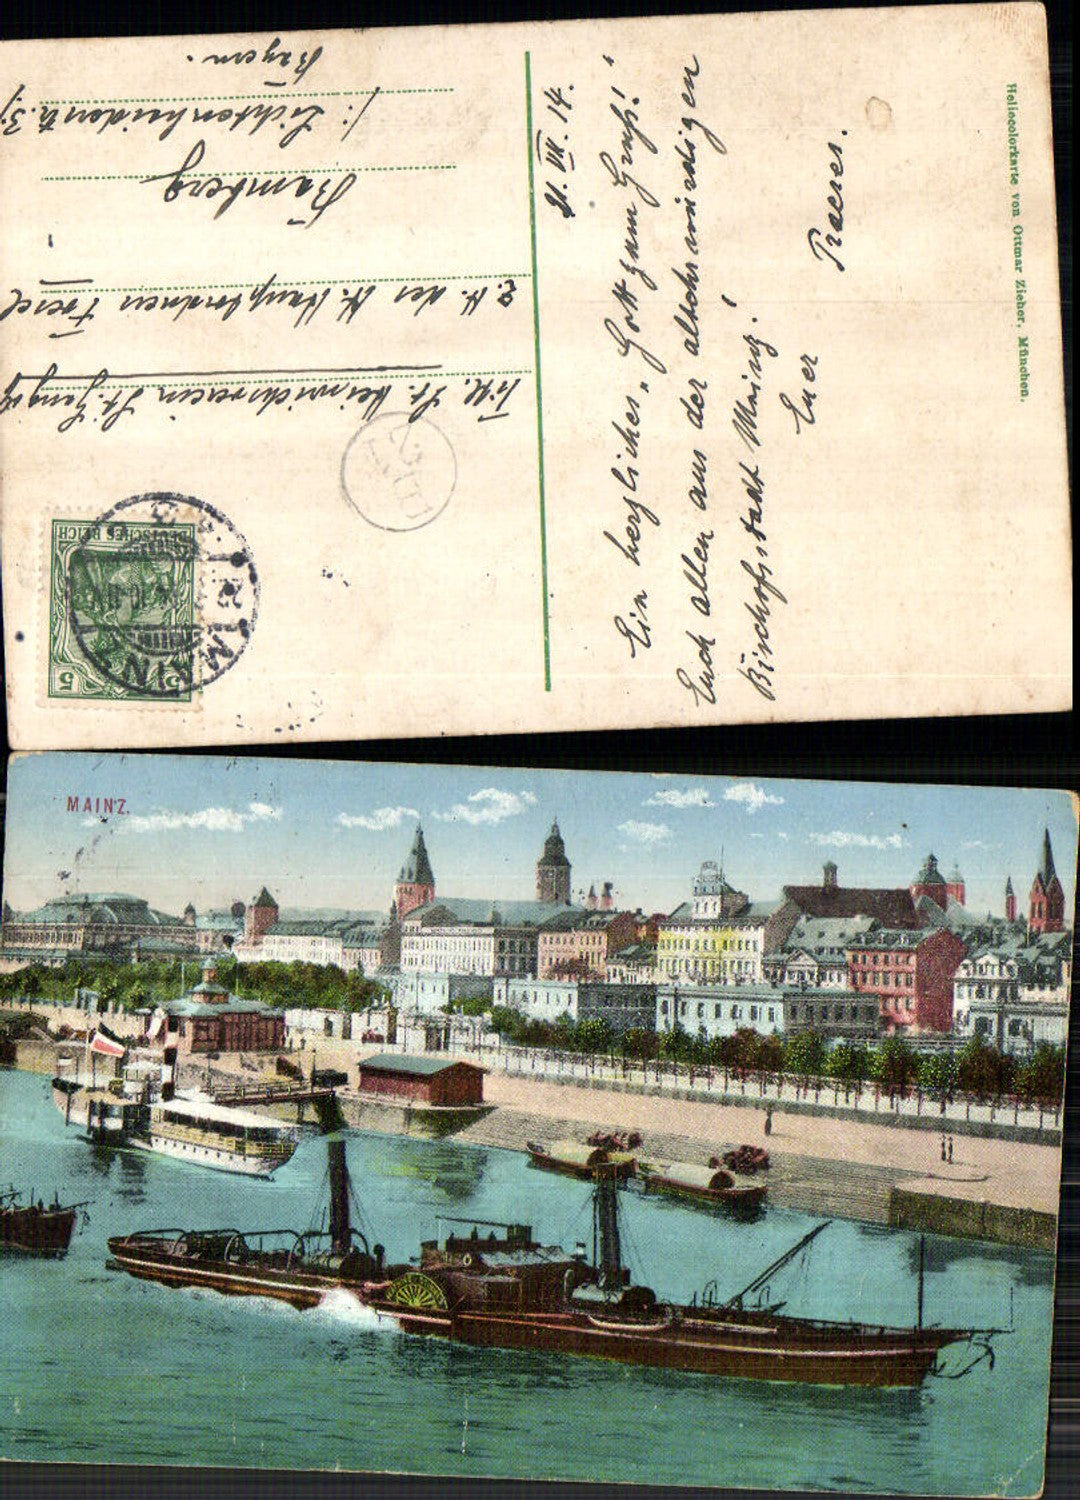 Heliocolorkarte von Ottmar Zieher, München.
21. VIII. 14.
Ein herzliches „Gott zum Gruß!“
Euch allen aus der altehrwürdigen
Bischofsstadt Mainz!
Euer
Praeses.
Titl. St. Heinrichsverein St. Gangolf
z. H. des H. Hauptkadnen
Bamberg
/: Lichtenhaidestr. 3 :/
Bayern.
DEUTSCHES REICH
5 5
MAINZ
MAINZ.